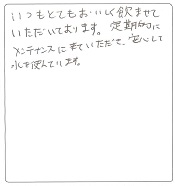 いつもとてもおいしく飲ませて
いただいております。定期的に
メンテナンスに来ていただき、安心して
水を飲んでいます。